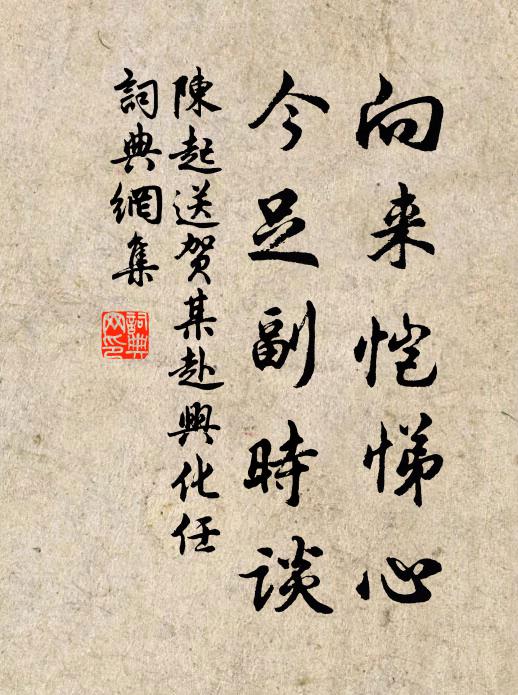 向来恺悌心
今足副時談
陳起送贺某赴興化任
詞典網集
詞典网印